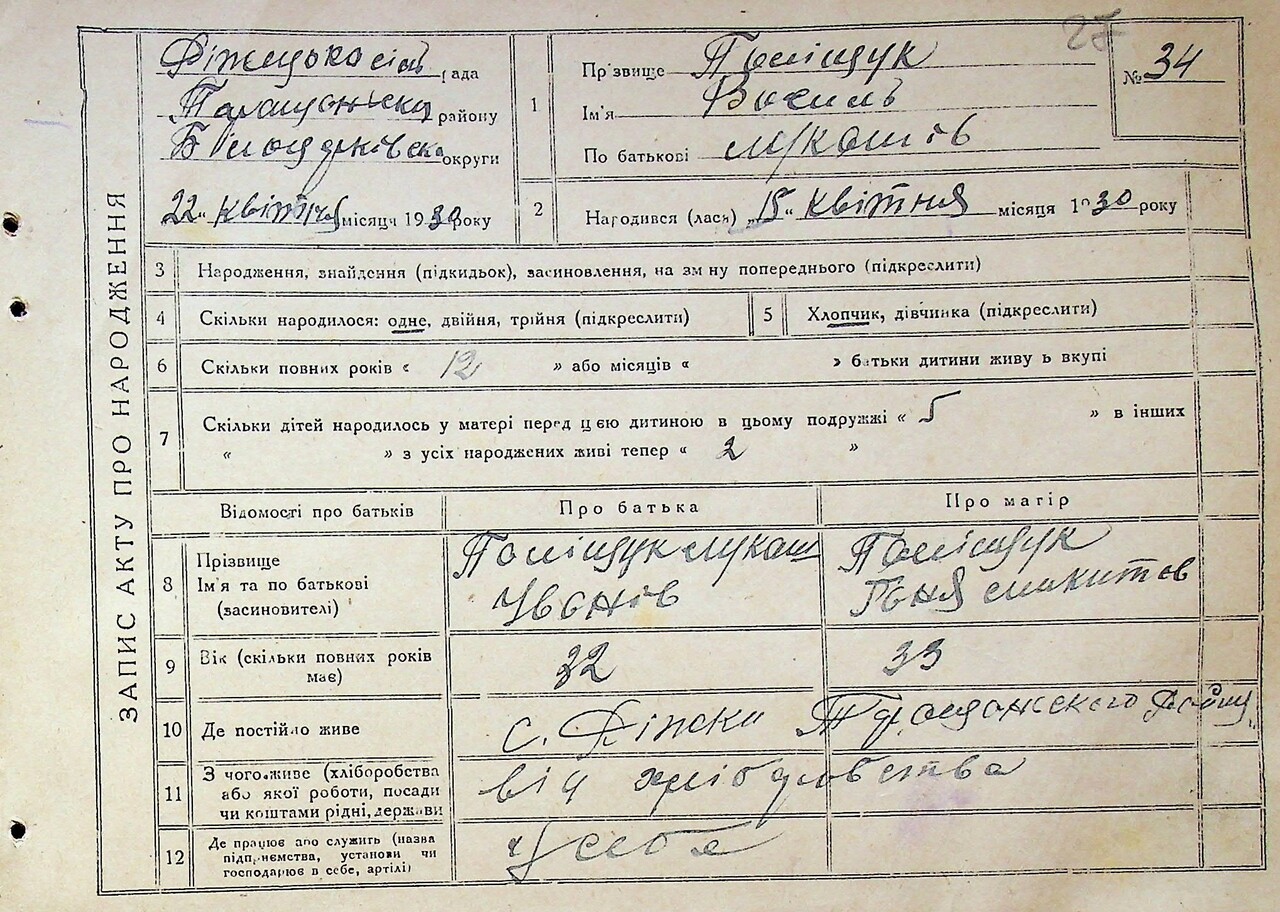 27
ЗАПИС АКТУ ПРО НАРОДЖЕННЯ
рада
району
Білоцерківська округи
22 „ квітня місяця 1930 року
1
Прізвище Поліщук
Ім'я Василь
По батькові Лукашів
№ 34
2 Народився (лася) „15“ квітня місяця 1930 року
3 Народження, знайдення (підкидьок), засиновлення, на зміну попереднього (підкреслити)
4 Скільки народилося: одне, двійня, трійня (підкреслити)
5 Хлопчик, дівчинка (підкреслити)
6 Скільки повних років « 12 » або місяців « » батьки дитини живуть вкупі
7 Скільки дітей народилось у матері перед цією дитиною в цьому подружжі « 5 » в інших
« » з усіх народжених живі тепер « 2 »
Відомості про батьків Про батька Про матір
8 Прізвище
Ім'я та по батькові
(засиновителі)
Поліщук Лукаш
Іванів
Поліщук
Микитов
9 Вік (скільки повних років
має)
32
33
10 Де постійно живе
с. Таращанского району
11 З чого живе (хліборобства
або якої роботи, посади
чи коштами рідні, держави
від хліборобства
12 Де працює або служить (назва
підприємства, установи чи
господарює в себе, артілі)
у себе